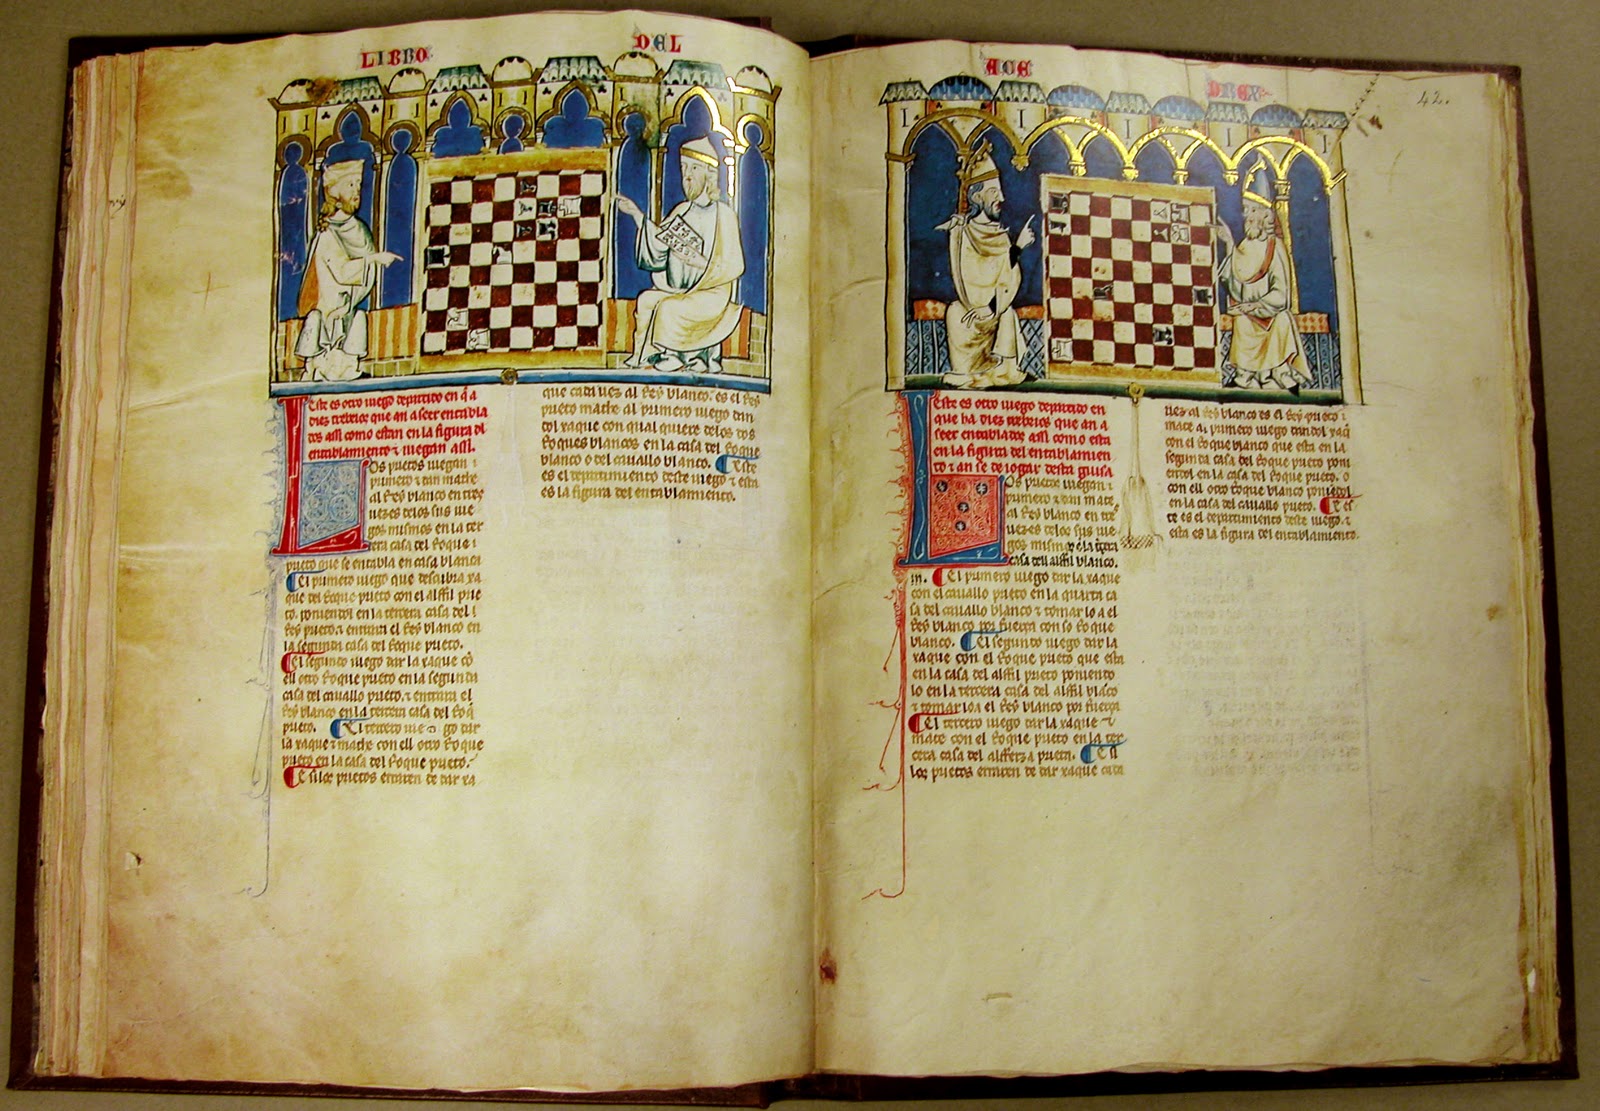 LIBRO DEL
Este es otro iuego departido en q̃ a
diez trebeios que an a seer entabla
dos assi como estan en la figura dl
entablamiento ⁊ iuegan assi.
Los prietos iuegan
primero ⁊ dan mate
al Rey blanco en tres
uezes delos sus iue
gos mismos en la ter
cera casa del Roque
prieto que se entabla en casa blanca
El primero iuego que descubra xa
que del Roque prieto con el alffil prie
to. poniendol en la tercera casa del
Rey prieto. ⁊ entrara el Rey blanco en
la segunda casa del Roque prieto.
El segundo iuego dar la xaque cõ
ell otro Roque prieto en la segunda
casa del cauallo prieto. ⁊ entrara el
Rey blanco en la tercera casa del Roq̃
prieto. El tercero iue go dar
la xaque ⁊ mathe con ell otro Roque
prieto en la casa del Roque prieto.
E si los prietos erraren de dar xa
que cada uez al Rey blanco. es el Rey
prieto mathe al primero iuego dan
dol xaque con qual quiere delos dos
Roques blancos en la casa del Roque
blanco o del cauallo blanco. Este
es el departimiento deste iuego ⁊ esta
es la figura del entablamiento.
ACE DREX
42.
Este es otro iuego departido en
que ha diez trebeios que an a
seer entablados assi como esta
en la figura del entablamien
to ⁊ an se de iogar desta guisa
Los prietos iuegan
primero ⁊ dan mate
al Rey blanco en tres
uezes delos sus iue
gos mismos en la tercera
casa dell alffil blanco.
El primero iuego dar la xaque
con el cauallo prieto en la quarta ca
sa del cauallo blanco ⁊ tomar lo a el
Rey blanco por fuerça con so Roque
blanco. El segundo iuego dar la
xaque con el Roque prieto que esta
en la casa del alffil prieto poniendo
lo en la tercera casa del alffil blãco
⁊ tomar lo a el Rey blanco por fuerça
El tercero iuego dar la xaque ⁊
mate con el Roque prieto en la ter
cera casa del alfferza prieta. E si
los prietos erraren de dar xaque cada
uez al Rey blanco es el Rey prieto
mate al primero iuego dandol xaq̃
con el Roque blanco que esta en la
segunda casa del Roque prieto poni
endol en la casa del Roque prieto. o
con ell otro Roque blanco poniedol
en la casa del cauallo prieto. E es
te es el departimiento deste iuego. ⁊
esta es la figura del entablamiento.